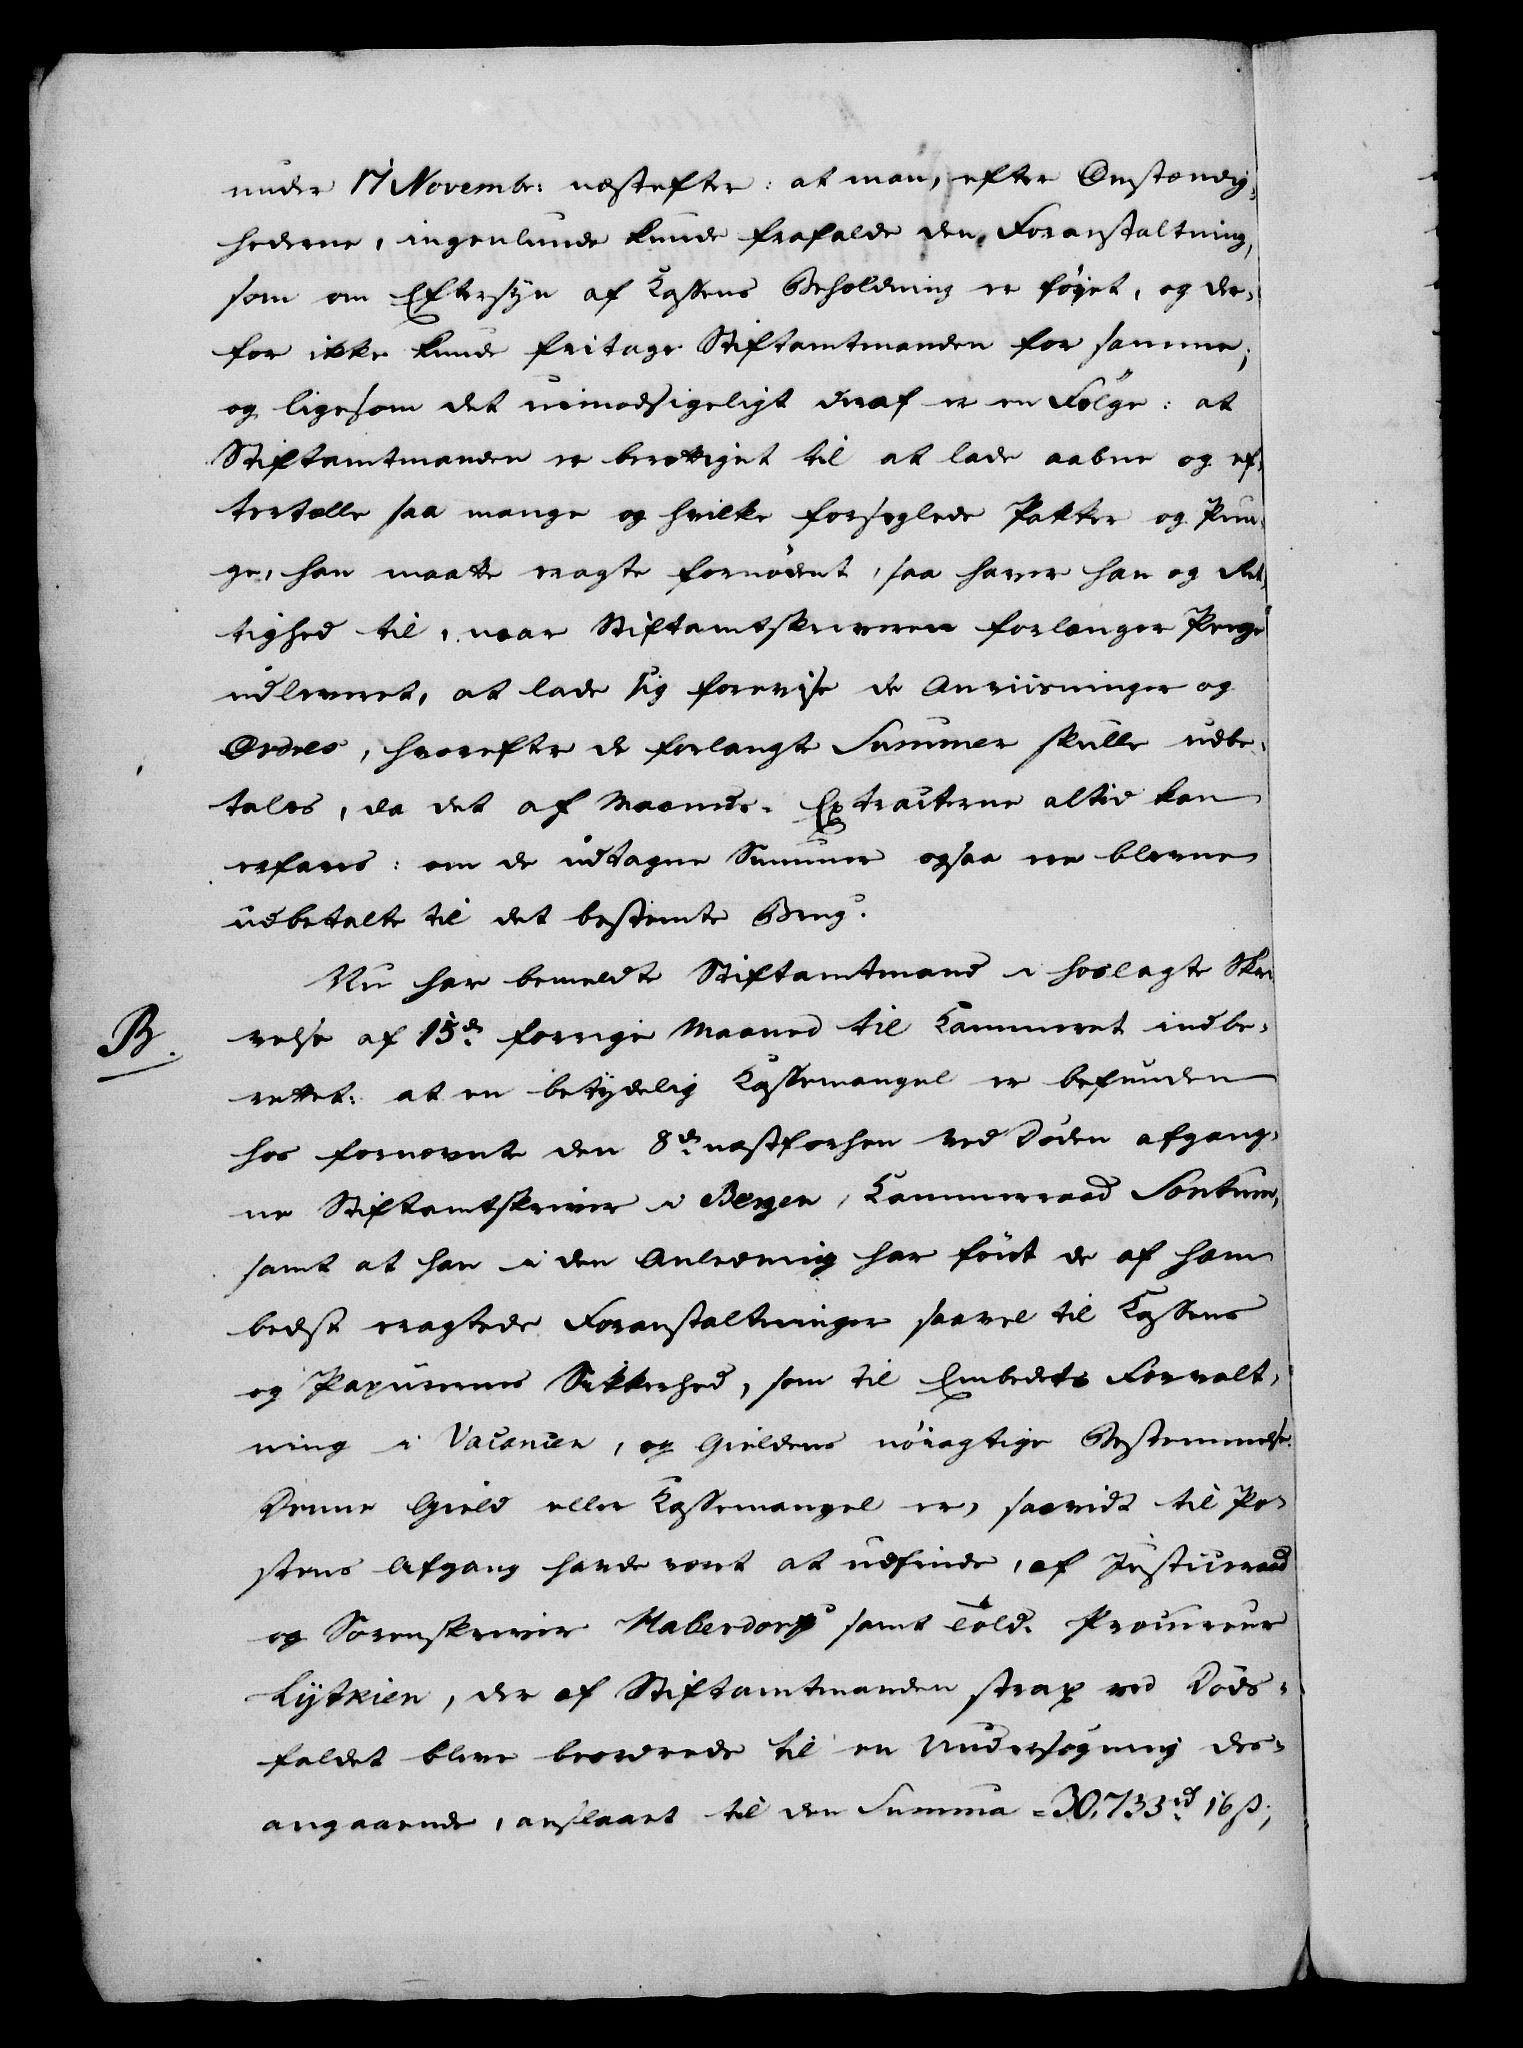 under 17 Novembr: næstefter: at man, efter Omstændig,
hederne, ingenlunde kunde frafalde den Foranstaltning,
som om Eftersÿn af Kassens Beholdning er föÿet, og der,
for ikke kunde fritage Stiftamtmanden for samme;
og ligesom det uimodsigeligt deraf er en Fölge: at
Stiftamtmanden er berettiget til at lade aabne og ef,
tertælle saa mange og hvilke forseglede Pakker og Pun,
ge, han maatte eragte fornödent, saa haver han og Ret,
tighed til, naar Stiftamtskriveren forlanger Penge
udleveret, at lade sig forevise de Anviisninger og
Ordres, hvorefter de forlangte Summer skulle udbe,
tales, da det af Maaneds-Extracterne altid kan
erfares: om de udtagne Summer ogsaa ere blevne
udbetalte til det bestemte Brug.
Nu har bemeldte Stiftamtmand i hoslagte Skri
B. velse af 15de forrige Maaned til Kammeret indbe,
rettet: at en betÿdelig Kassemangel er befunden
hos fornævnte den 8de næstforhen ved Döden afgang,
ne Stiftamtskriver i Bergen, Kammerraad Sontum,
samt at han i den Anledning har föiet de af ham
bedst eragtede Foranstaltninger saavel til Kassens
og Papirernes Sikkerhed, som til Embedets Forvalt,
ning i Vacancen, og Gieldens nöiagtige Bestemmelse.
Denne Gield eller Kassemangel er, saavidt til Po,
stens Afgang havde været at udfinde, af Justiceraad
og Sorenskriver Haberdorff samt Told-Procureur
Lÿtkien, der af Stiftamtmanden strax ved Döds,
faldet bleve beordrede til en Undersögning des,
angaaende, anslaaet til den Summa = 30,733 rd 16 ß;